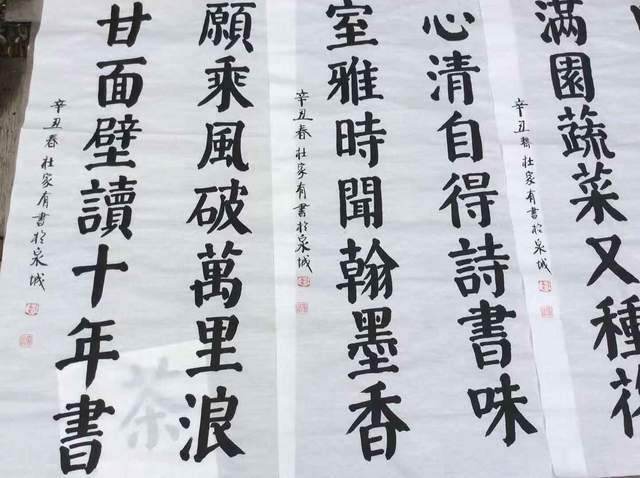 滿園蔬菜又種花
辛丑春杜家有書於泉城
心清自得詩書味
室雅時聞翰墨香
辛丑春杜家有書於泉城
願乘風破萬里浪
甘面壁讀十年書
辛丑春杜家有書於泉城
茶